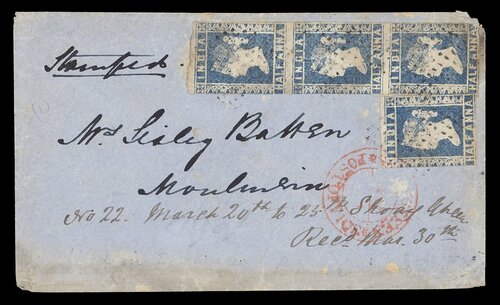 INDIA HALF ANNA
INDIA HALF ANNA
INDIA HALF ANNA
INDIA HALF ANNA
Stamped
Mrs Sisley Batten
Moulmein
No 22. March 20th to 25th Shoay Gheen
Recd Mar. 30th